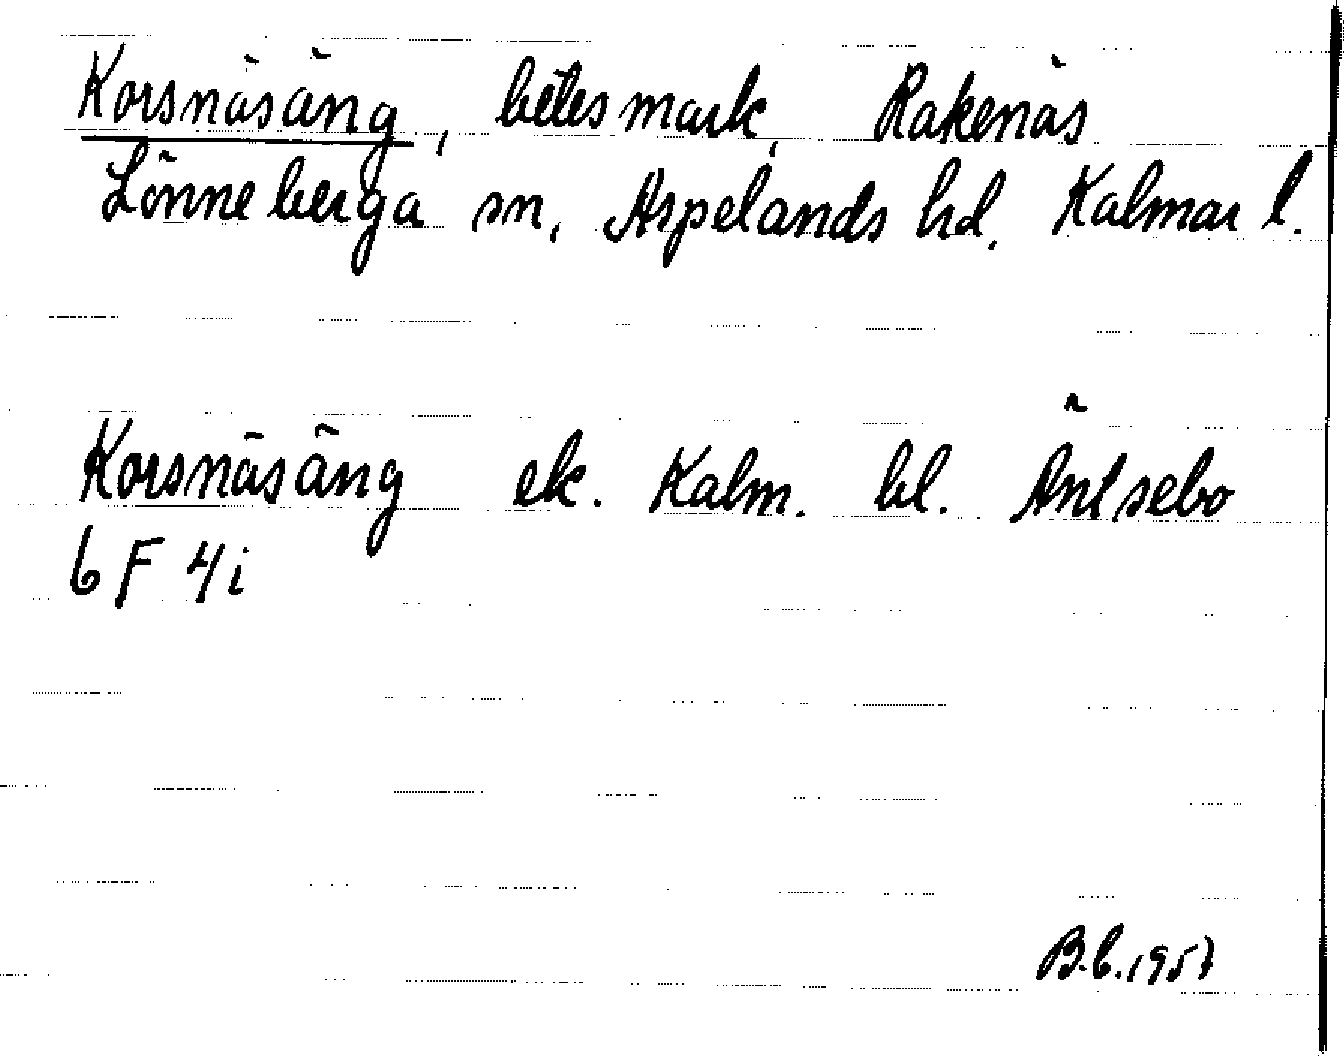 Korsnäsäng, betesmark, Rakenäs
Lönneberga sn, Aspelands hd, Kalmar l.
Korsnäsäng ek. Kalm. bl. Äntsebo
6 F 4i
B.b.1957